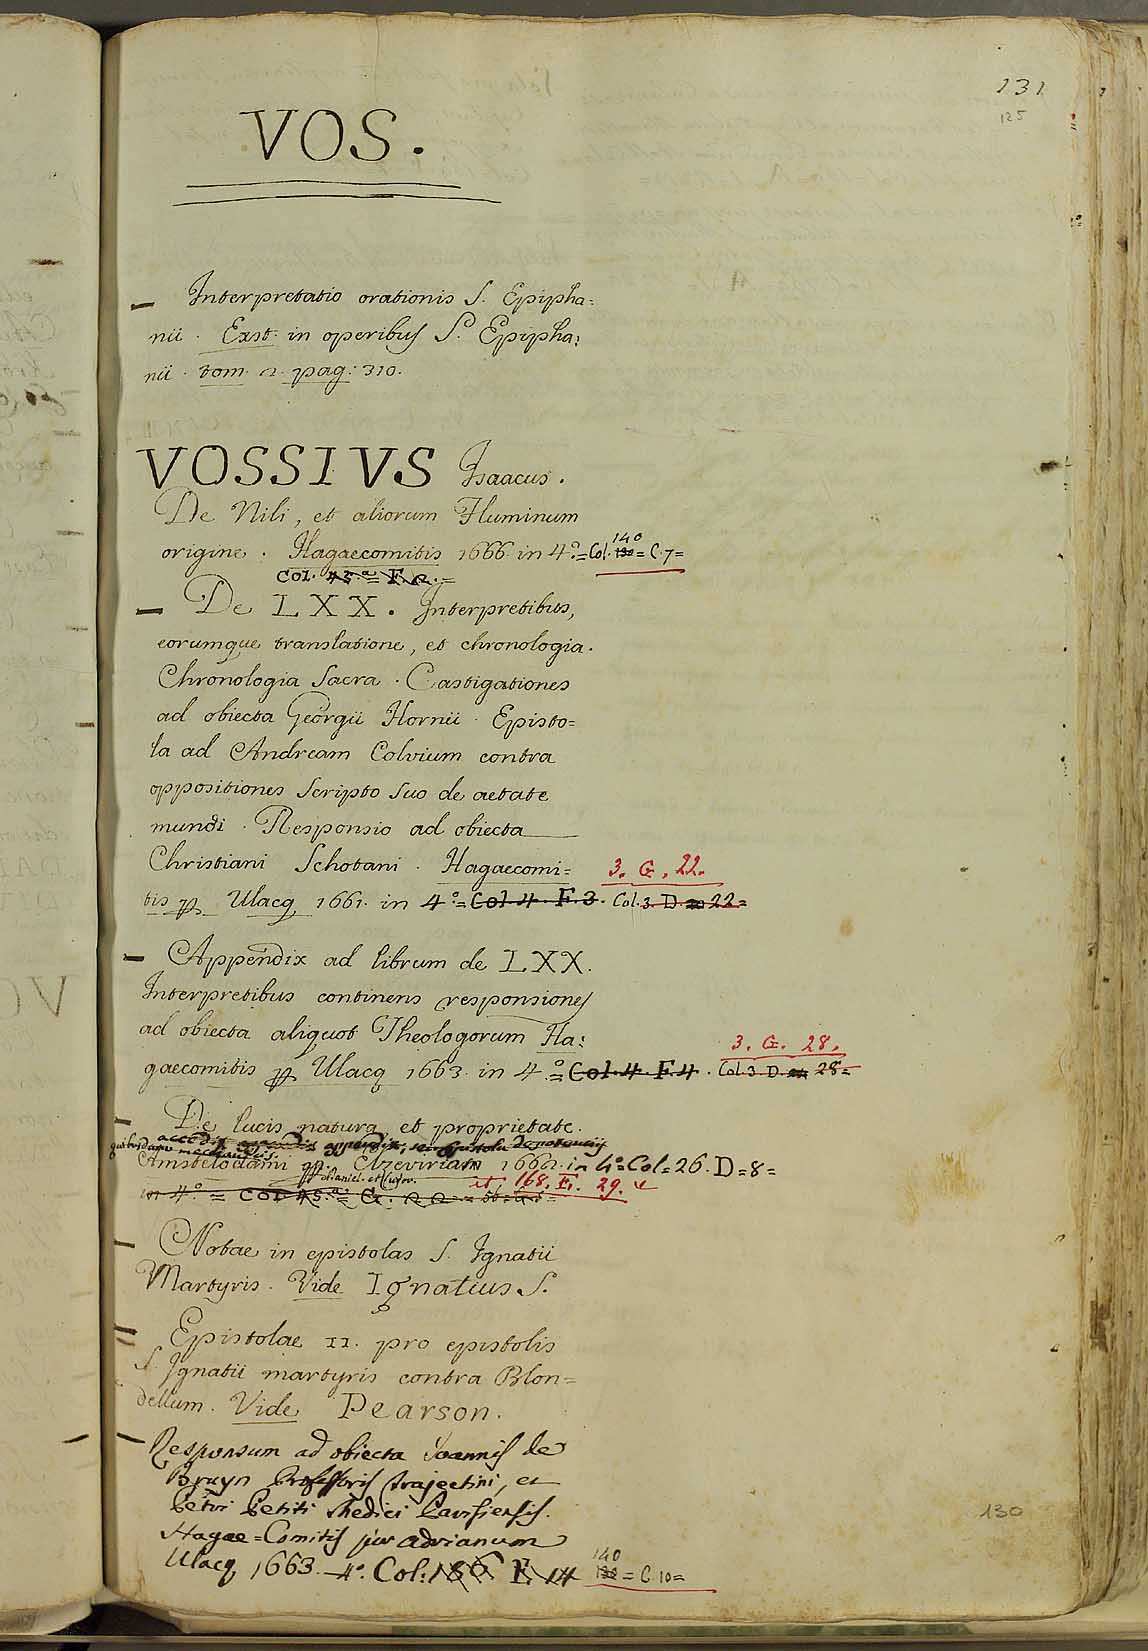 131
125
VOS.
– Interpretatio orationis S. Epipha=
nii. Exst. in operibus S. Epipha:
nii. tom. 2. pag: 310.
VOSSIVS Isaacus.
De Nili, et aliorum Fluminum
140
origine. Hagaecomitis 1666. in 4°.= Col. 130 = C.7=
Col. 45ª = F. 2.=
– De LXX. Interpretibus,
eorumque translatione, et chronologia.
Chronologia Sacra. Castigationes
ad obiecta Georgii Hornii. Episto=
la ad Andream Colvium contra
oppositiones Scripto suo de aetate
mundi. Responsio ad obiecta
Christiani Schotani. Hagaecomi=
3. G. 22.
tis pp Ulacq 1661. in 4°.= Col. 4. F. 3. Col. 3. D. 22=
– Appendix ad librum de LXX.
Interpretibus continens responsiones
ad obiecta aliquot Theologorum Ha:
3. G. 28.
gaecomitis pp Ulacq 1663. in 4°.= Col. 4. F. 4. Col. 3. D. 28=
– De lucis natura, et proprietate.
accedit appendix, seu Epistola de potentiis
quibusdam machanicis.
Amstelodami pp. Elzevirian 1662. in 4°. Col=26. D=8=
pp Daniel. et Ludov.
et 168. F. 29.
in 4°.= Col 45.ª= G. 22
– Notae in epistolas S. Ignatii
Martyris. Vide Ignatius S.
– Epistolae II. pro epistolis
S. Ignatii martyris contra Blon=
dellum. Vide Pearson.
– Responsum ad obiecta Joannis de
Bruyn Professoris trajectini, et
Petri Petiti Medici Parisiensis.
Hagae=Comitis per Adrianum
140
Ulacq 1663. 4°. Col: 136 F. 14 130 = C.10=
130